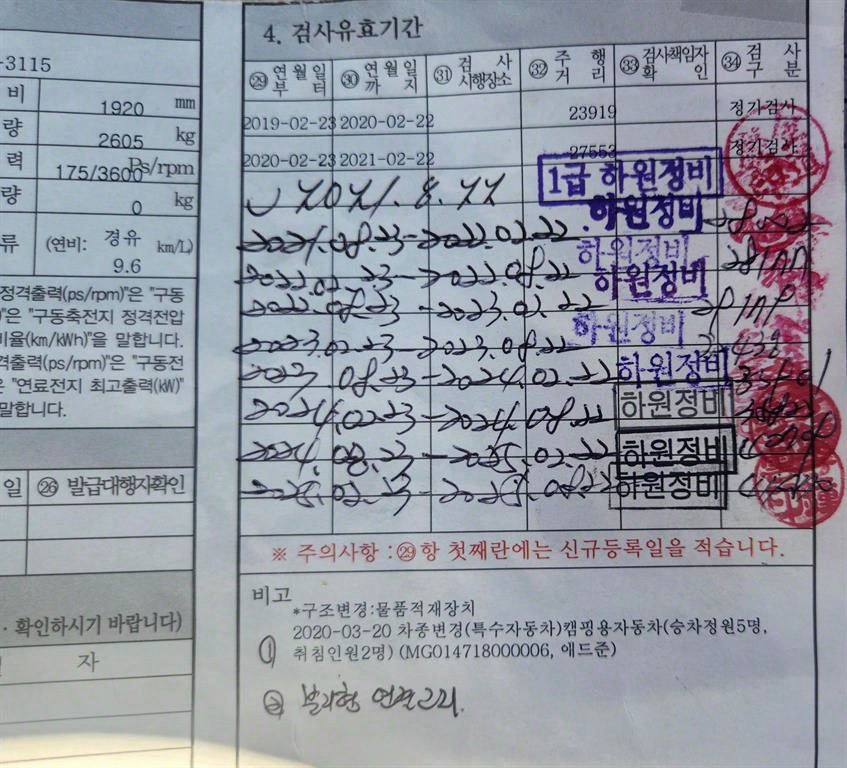 4. 검사유효기간
㉙ 연월일부터 ㉚ 연월일까지 ㉛ 검사시행장소 ㉜ 주행거리 ㉝ 검사책임자확인 ㉞ 검사구분
2019-02-23 2020-02-22 23919 정기검사
2020-02-23 2021-02-22 27553 정기검사
1급 하원정비
2021.8.22
하원정비
2021.08.23-2022.02.22
하원정비
2022.02.23-2022.08.22
하원정비
2022.08.23-2023.02.22
하원정비
2023.02.23-2023.08.22
2023.08.23-2024.02.22 하원정비
2024.02.23-2024.08.22 하원정비
2024.08.23-2025.02.22 하원정비
2025.02.23-2025.08.22 하원정비
※ 주의사항 : ㉙항 첫째란에는 신규등록일을 적습니다.
비고
*구조변경:물품적재장치
① 2020-03-20 차종변경(특수자동차)캠핑용자동차(승차정원5명,
취침인원2명) (MG014718000006, 애드준)
② 분리형 연결고리.
-3115
비 1920 mm
량 2605 kg
력 175/3600 Ps/rpm
량 0 kg
류 (연비: 경유 9.6 km/L)
정격출력(ps/rpm)"은 "구동
)"은 "구동축전지 정격전압
비율(km/kWh)"을 말합니다.
격출력(ps/rpm)"은 "구동전
은 "연료전지 최고출력(kW)"
말합니다.
일 ㉖ 발급대행자확인
· 확인하시기 바랍니다)
자